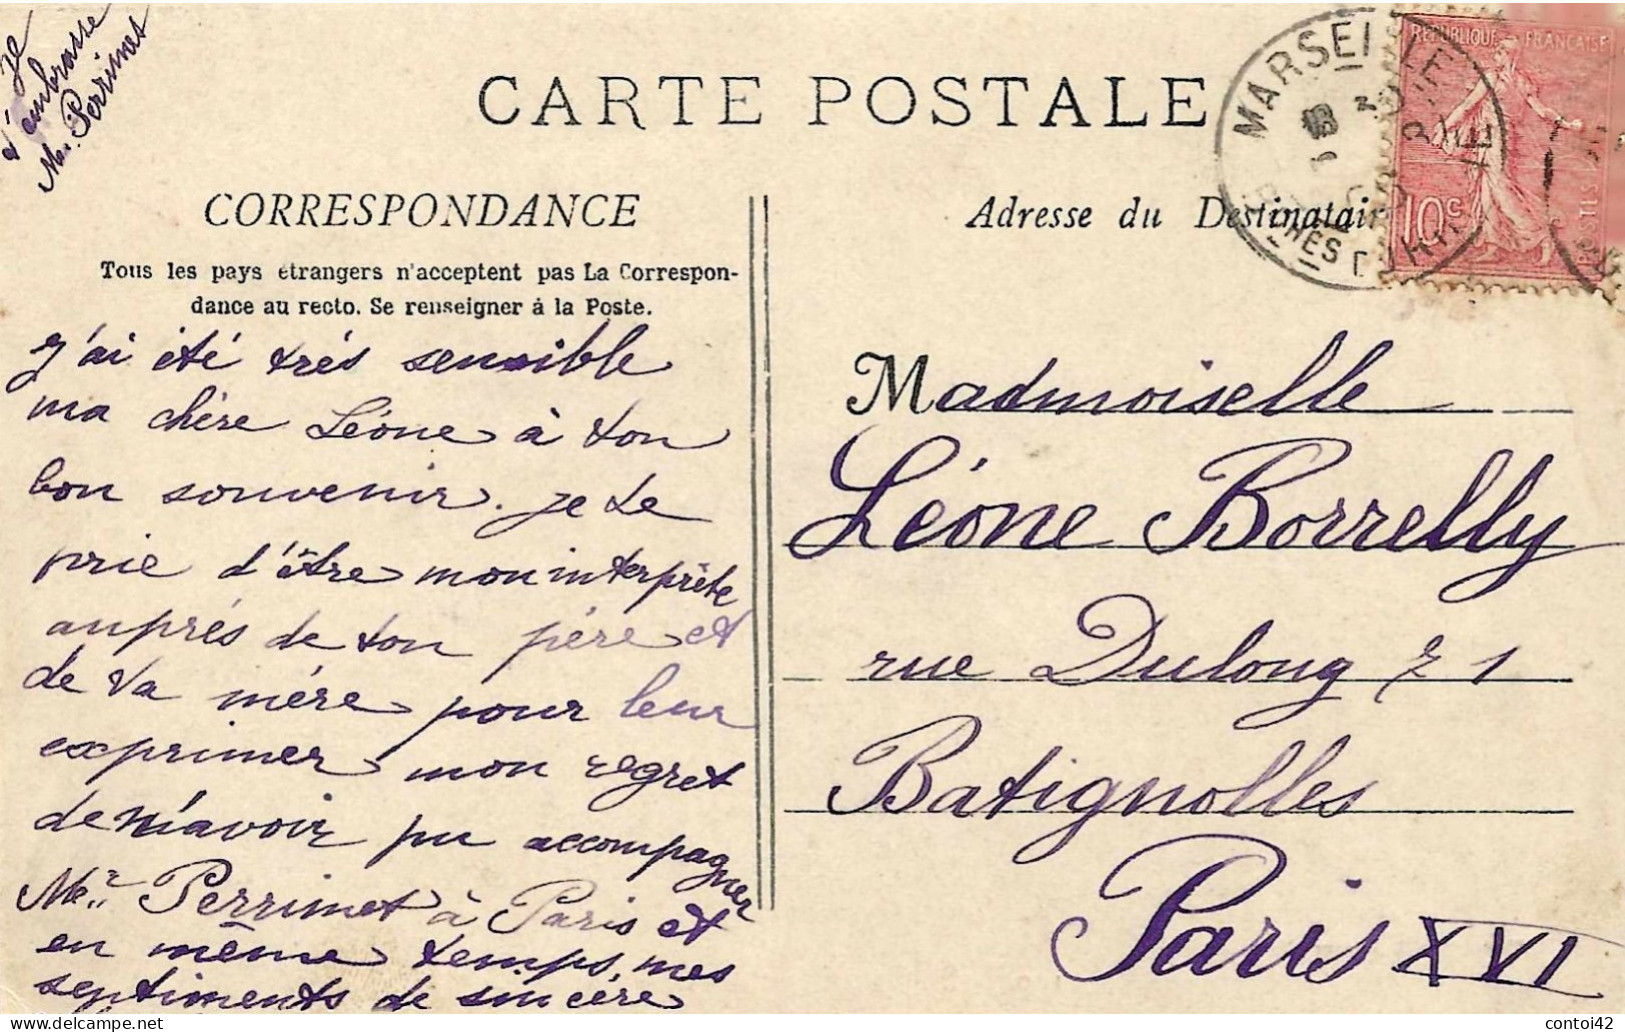 Je
t'ambrasse
Me. Perrimet
CARTE POSTALE
CORRESPONDANCE
Tous les pays étrangers n'acceptent pas La Correspon-
dance au recto. Se renseigner à la Poste.
j'ai été très sensible
ma chère Léone à ton
bon souvenir. je te
prie d'être mon interprète
auprés de ton père et
de ta mère pour leur
exprimer mon regret
de n'avoir pu accompagner
Mr. Perrimet à Paris et
en même temps, mes
sentiments de sincére
Adresse du Destinatair
MARSEILLE
RÉPUBLIQUE FRANÇAISE
10c
POSTES
Madmoiselle
Léone Borrelly
rue Dulong 71
Batignolles
Paris XVI
www.delcampe.net
contoi42